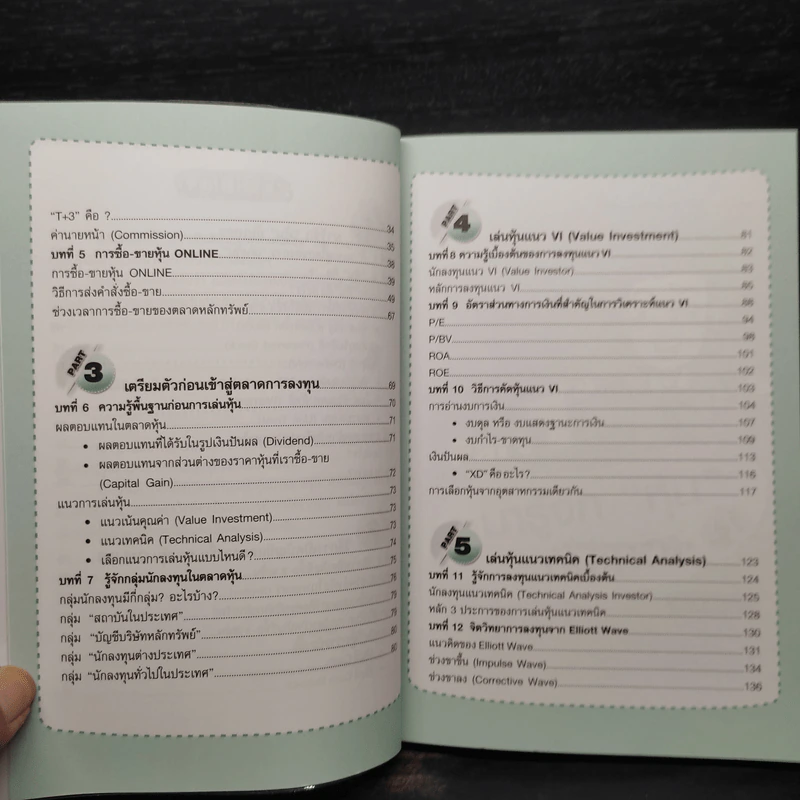 "T+3" คือ ? 34
ค่านายหน้า (Commission) 35
บทที่ 5 การซื้อ-ขายหุ้น ONLINE 38
การซื้อ-ขายหุ้น ONLINE 39
วิธีการส่งคำสั่งซื้อ-ขาย 49
ช่วงเวลาการซื้อ-ขายของตลาดหลักทรัพย์ 67
PART 3 เตรียมตัวก่อนเข้าสู่ตลาดการลงทุน 69
บทที่ 6 ความรู้พื้นฐานก่อนการเล่นหุ้น 70
ผลตอบแทนในตลาดหุ้น 71
• ผลตอบแทนที่ได้รับในรูปเงินปันผล (Dividend) 71
• ผลตอบแทนจากส่วนต่างของราคาหุ้นที่เราซื้อ-ขาย
(Capital Gain) 72
แนวการเล่นหุ้น 73
• แนวเน้นคุณค่า (Value Investment) 73
• แนวเทคนิค (Technical Analysis) 73
• เลือกแนวการเล่นหุ้นแบบไหนดี ? 74
บทที่ 7 รู้จักกลุ่มนักลงทุนในตลาดหุ้น 75
กลุ่มนักลงทุนมีกี่กลุ่ม? อะไรบ้าง? 78
กลุ่ม "สถาบันในประเทศ" 79
กลุ่ม "บัญชีบริษัทหลักทรัพย์" 79
กลุ่ม "นักลงทุนต่างประเทศ" 80
กลุ่ม "นักลงทุนทั่วไปในประเทศ" 80
PART 4 เล่นหุ้นแนว VI (Value Investment) 81
บทที่ 8 ความรู้เบื้องต้นของการลงทุนแนว VI 82
นักลงทุนแนว VI (Value Investor) 83
หลักการลงทุนแนว VI 85
บทที่ 9 อัตราส่วนทางการเงินที่สำคัญในการวิเคราะห์แนว VI 88
P/E 94
P/BV 98
ROA 101
ROE 102
บทที่ 10 วิธีการคัดหุ้นแนว VI 103
การอ่านงบการเงิน 104
• งบดุล หรือ งบแสดงฐานะการเงิน 107
• งบกำไร-ขาดทุน 109
เงินปันผล 113
• "XD" คืออะไร? 116
การเลือกหุ้นจากอุตสาหกรรมเดียวกัน 117
PART 5 เล่นหุ้นแนวเทคนิค (Technical Analysis) 123
บทที่ 11 รู้จักการลงทุนแนวเทคนิคเบื้องต้น 124
นักลงทุนแนวเทคนิค (Technical Analysis Investor) 125
หลัก 3 ประการของการเล่นหุ้นแนวเทคนิค 128
บทที่ 12 จิตวิทยาการลงทุนจาก Elliott Wave 130
แนวคิดของ Elliott Wave 131
ช่วงขาขึ้น (Impulse Wave) 134
ช่วงขาลง (Corrective Wave) 136